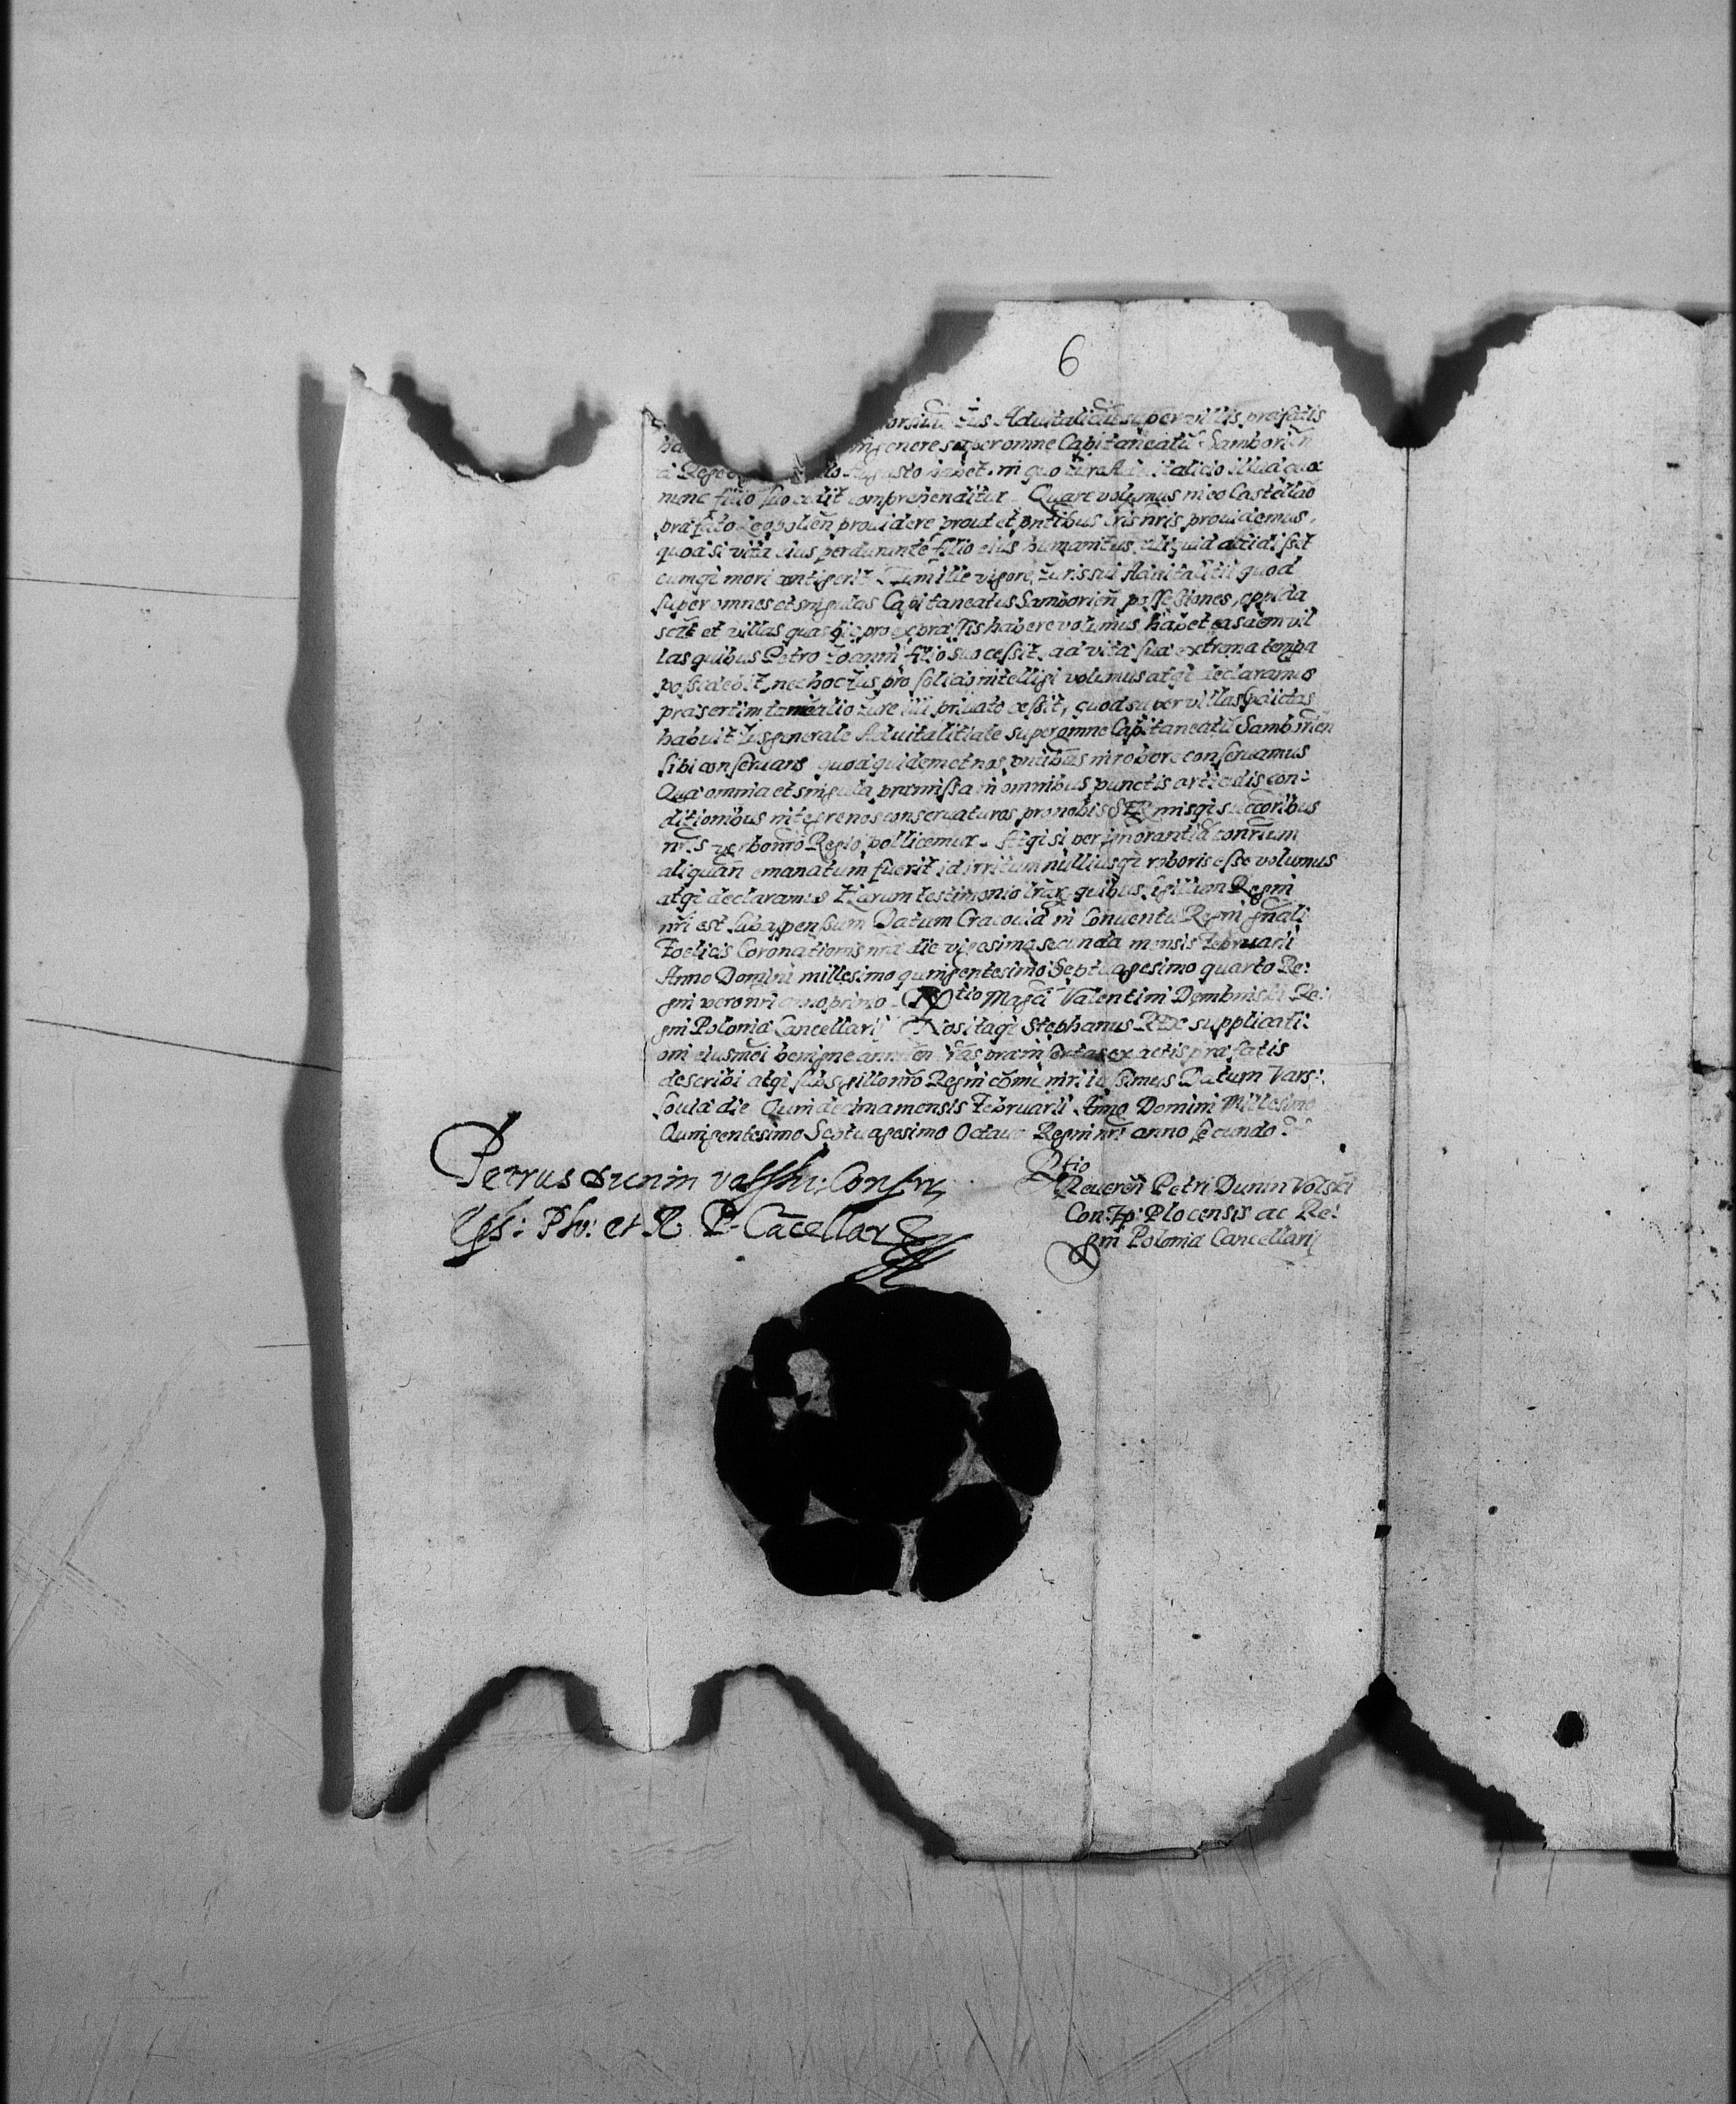 6
Ius Aduitaliciũ super villis præfatis
in genere super omne Capitaneatũ Samborien̄
a Rege Augusto habet, in quo iure Aduitalicio illud quoꝗ
nunc filio suo cedit comprehenditur. Quare volumus in eo Castellão
præfato Leopolien̄ prouidere prout et pn̄tibus lr̄is nr̄is prouidemus,
quod si vita eius perdurante filio eius humanitus aliquid accidisset
eumꝗ mori contigerit, Tum ille vigore Iuris sui Aduitalitii quod
super omnes et singulas Capitaneatus Samborien̄ possessiones, oppida
scilt et villas quas hic pro expræssis habere volumus habet easdem vil
las quibus Petro Ioanni filio suo cessit, ad vitæ suæ extrema tempa
possidebit, nec hoc Ius pro solido intelligi volumus atꝗ declaramus
præsertim tum alio iure illi priuato cessit, quod super villas p̱dictas
habuit Ius generale Aduitalitiale super omne Capitaneatũ Samborien̄
sibi conseruans quod quidem et nos pn̄tibus in robore conseruamus
Quæ omnia et singula præmissa in omnibus punctis articulis con:
ditionibus integre nos conseruaturos pro nobis SER̄misꝗ successoribus
nr̄is verbo nr̄o Regio pollicemur. Atꝗ si per ignorantiã contrium
aliquan̄ emanatum fuerit id irritum nulliusꝗ roboris esse volumus
atꝗ declaramus Harum testimonio lrãꝝ quibus sigillum Regni
nr̄i est subappensum Datum Cracouiæ in Conuentu Regni gn̄ali
Foelicis Coronationis nr̄æ die vigesima secunda mensis Februarii
Anno Domini millesimo quingentesimo Septuagesimo quarto Re:
gni vero nr̄i anno primo. R̄tio Mag̃ci Valentini Dembinski Re:
gni Poloniæ Cancellarii Nos itaꝗ Stephanus REX supplicati:
oni eiusmodi benigne annuen̄ lr̄as præinsertas ex actis præfatis
describi atꝗ sub sigillo nr̄o Regni cõmuniri iussimus Datum Vars:
souiæ die Quindecima mensis Februarii Anno Domini Millesimo
Quingentesimo Septuagesimo Octauo Regni nr̄i anno secundo.
Petrus Dunin volski: Confir,
Eps: Plo: et R. P. Cãcellar
R̄tio
Reueren̄ Petri Dunin Volski
Con: Ep: Plocensis ac Re:
gni Poloniæ Cancellarii